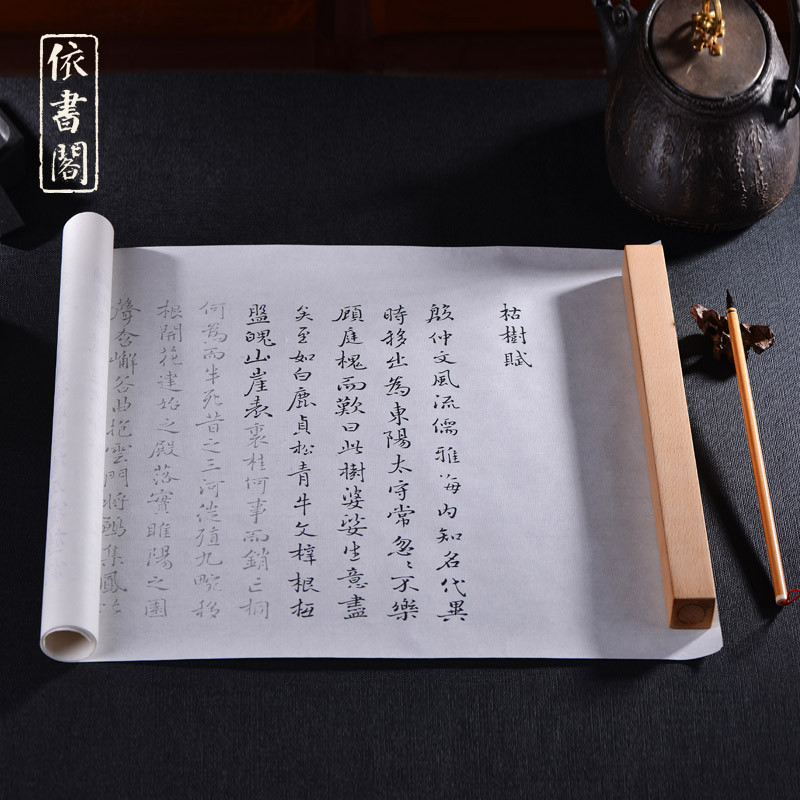 依書閣
枯樹賦
殷仲文風流儒雅海內知名代異
時移出為東陽太守常忽〻不樂
顧庭槐而歎曰此樹婆娑生意盡
矣至如白鹿貞松青牛文梓根柢
盤魄山崖表裏桂何事而銷亡桐
何為而半死昔之三河徙殖九畹移
根開花建始之殿落實睢陽之園
聲含嶰谷曲抱雲門將鶵集鳳